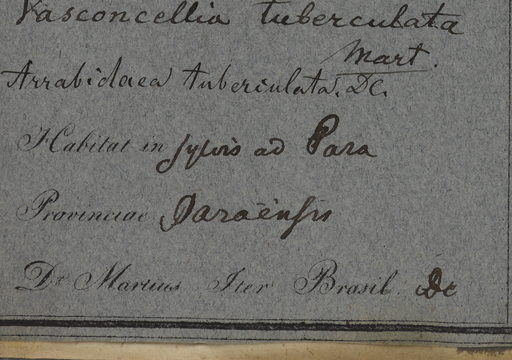 Vasconcellia tuberculata
Mart.
Arrabidaea tuberculata. DC.
Habitat in sylvis ad Para
Provinciae Paraënsis
Dr. Martius Iter Brasil. Dc